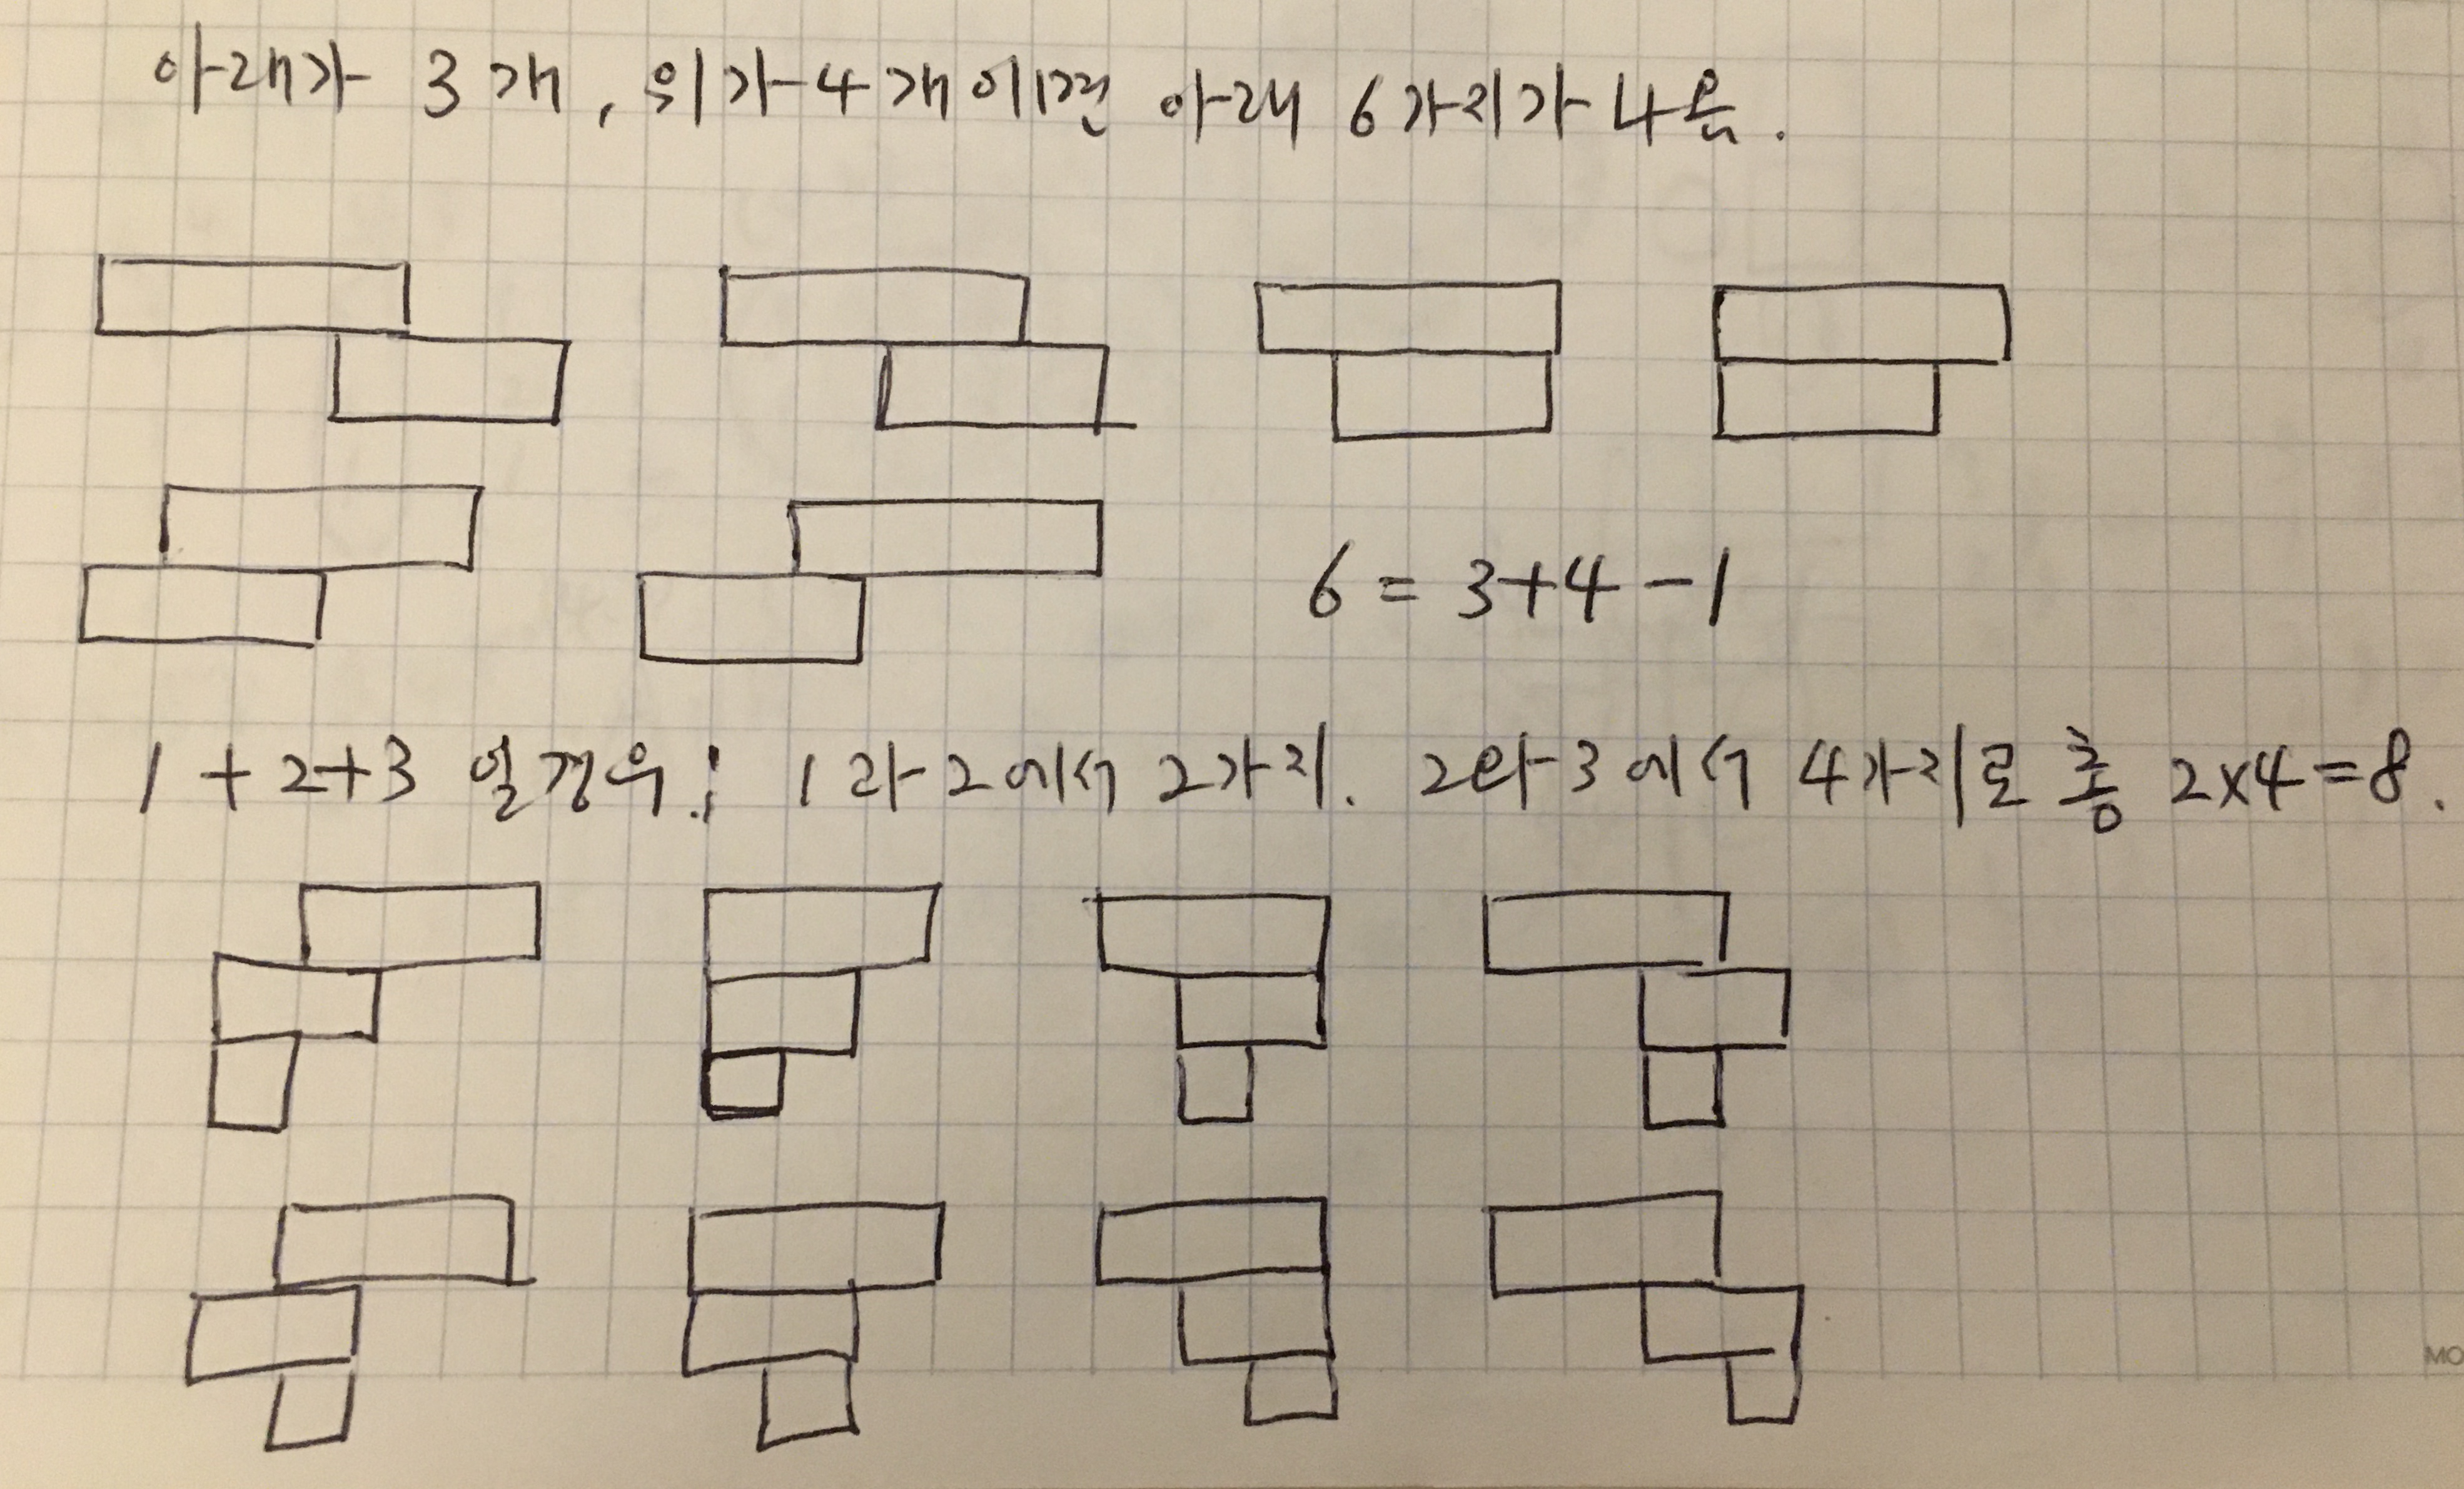 아래가 3개, 위가 4개이면 아래 6가지가 나옴.
6 = 3+4-1
1+2+3 일경우 : 1과 2에서 2가지. 2와 3에서 4가지로 총 2x4=8.
MO